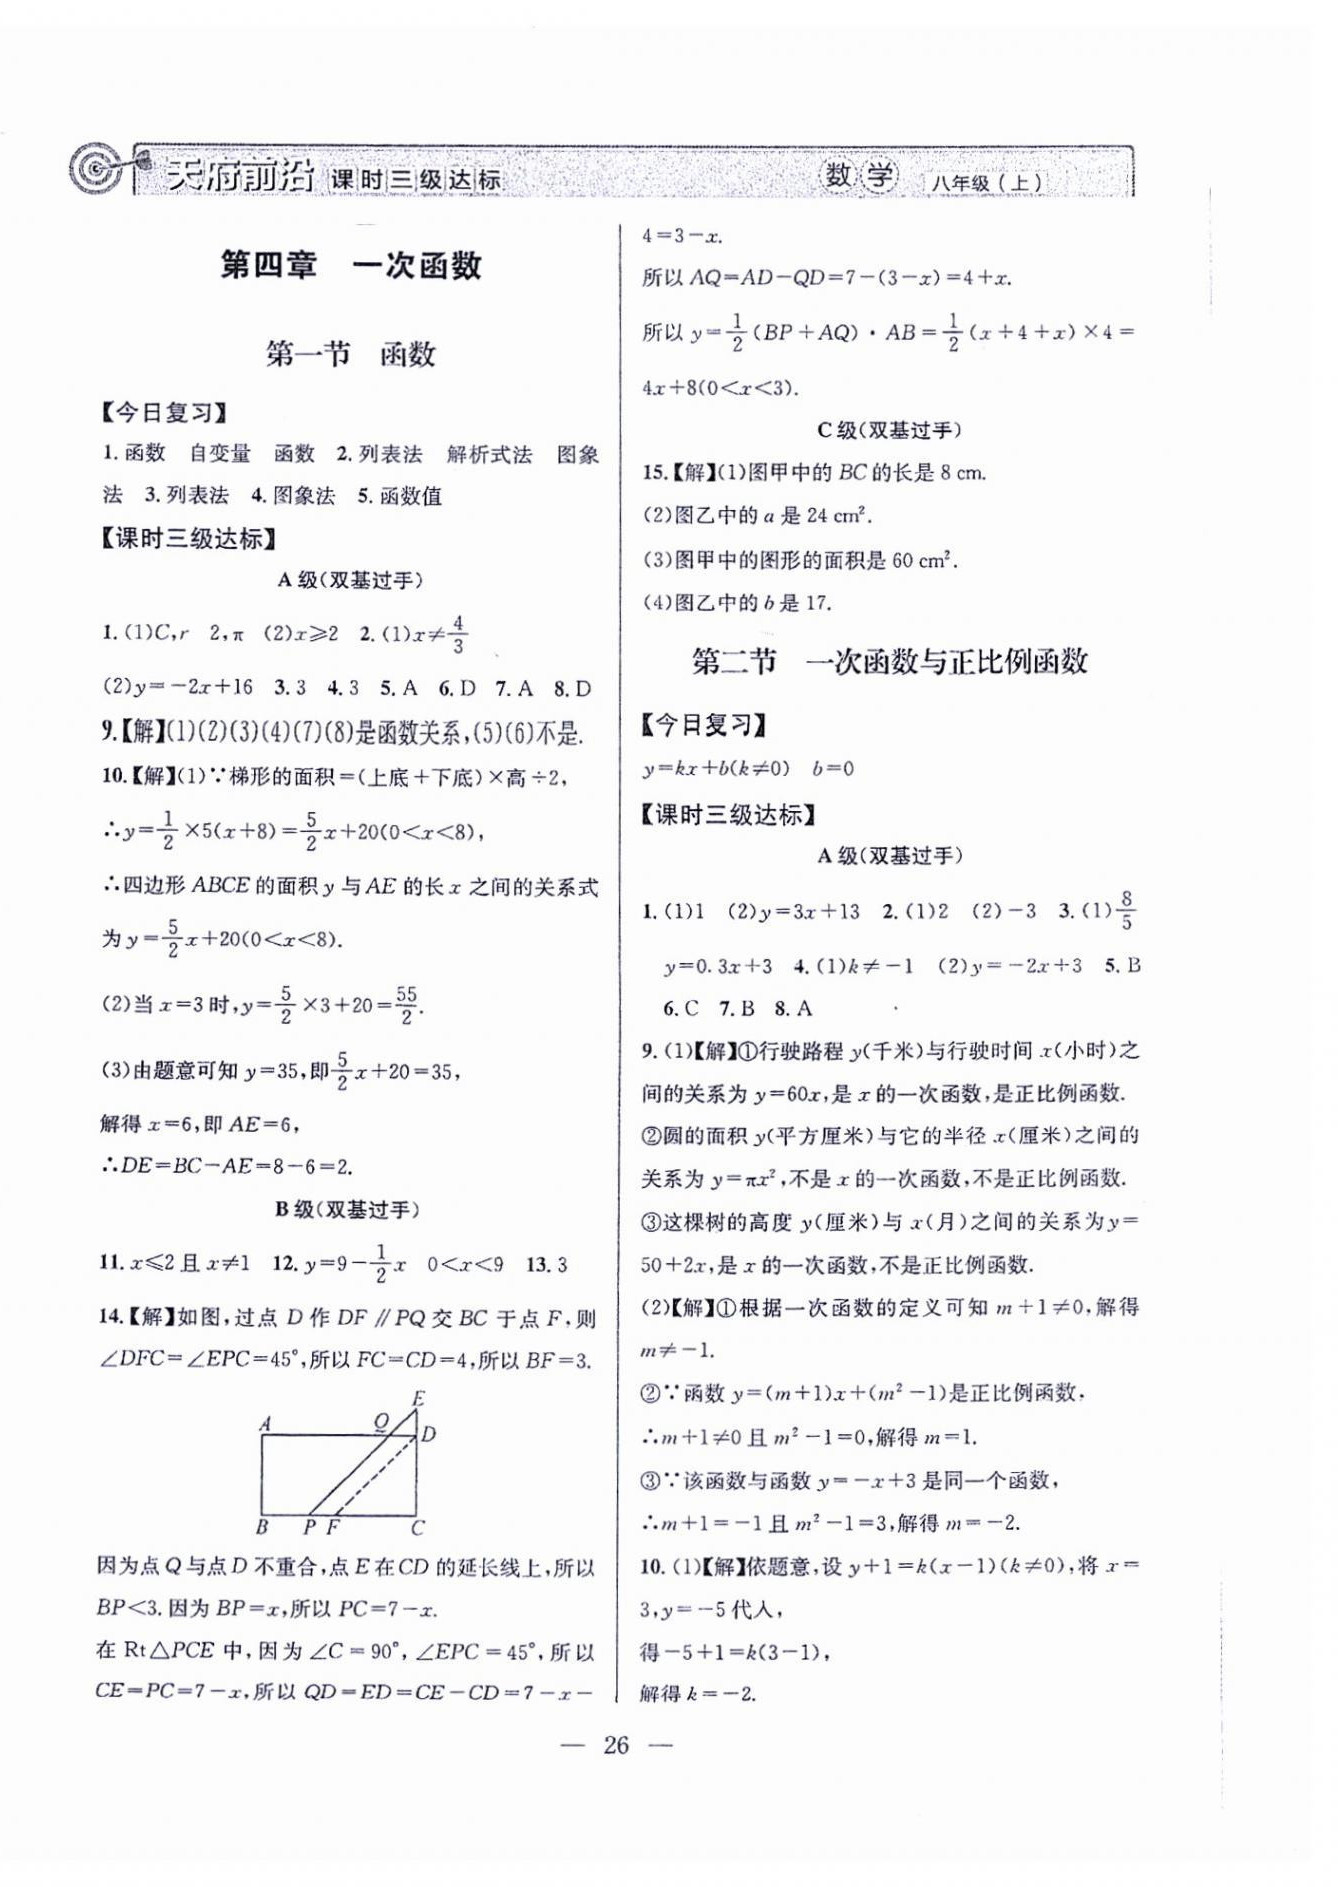 天府前沿 课时三级达标 数学 八年级（上）
第四章 一次函数
第一节 函数
【今日复习】
1. 函数 自变量 函数 2. 列表法 解析式法 图象
法 3. 列表法 4. 图象法 5. 函数值
【课时三级达标】
A 级（双基过手）
1. (1)C,r 2,π (2)x⩾2 2. (1)x≠4/3
(2)y=-2x+16 3. 3 4. 3 5. A 6. D 7. A 8. D
9.【解】(1)(2)(3)(4)(7)(8)是函数关系,(5)(6)不是.
10.【解】(1)∵梯形的面积=(上底+下底)×高÷2,
∴y=1/2×5(x+8)=5/2x+20(0<x<8),
∴四边形 ABCE 的面积 y 与 AE 的长 x 之间的关系式
为 y=5/2x+20(0<x<8).
(2)当 x=3 时,y=5/2×3+20=55/2.
(3)由题意可知 y=35,即5/2x+20=35,
解得 x=6,即 AE=6,
∴DE=BC-AE=8-6=2.
B 级（双基过手）
11. x⩽2 且 x≠1 12. y=9-1/2x 0<x<9 13. 3
14.【解】如图,过点 D 作 DF∥PQ 交 BC 于点 F,则
∠DFC=∠EPC=45°,所以 FC=CD=4,所以 BF=3.
E
A Q D
B P F C
因为点 Q 与点 D 不重合,点 E 在 CD 的延长线上,所以
BP<3. 因为 BP=x,所以 PC=7-x.
在 Rt△PCE 中,因为 ∠C=90°,∠EPC=45°,所以
CE=PC=7-x,所以 QD=ED=CE-CD=7-x-
4=3-x.
所以 AQ=AD-QD=7-(3-x)=4+x.
所以 y=1/2(BP+AQ)·AB=1/2(x+4+x)×4=
4x+8(0<x<3).
C 级（双基过手）
15.【解】(1)图甲中的 BC 的长是 8 cm.
(2)图乙中的 a 是 24 cm².
(3)图甲中的图形的面积是 60 cm².
(4)图乙中的 b 是 17.
第二节 一次函数与正比例函数
【今日复习】
y=kx+b(k≠0) b=0
【课时三级达标】
A 级（双基过手）
1. (1)1 (2)y=3x+13 2. (1)2 (2)-3 3. (1)8/5
y=0.3x+3 4. (1)k≠-1 (2)y=-2x+3 5. B
6. C 7. B 8. A
9. (1)【解】①行驶路程 y(千米)与行驶时间 x(小时)之
间的关系为 y=60x,是 x 的一次函数,是正比例函数.
②圆的面积 y(平方厘米)与它的半径 x(厘米)之间的
关系为 y=πx²,不是 x 的一次函数,不是正比例函数.
③这棵树的高度 y(厘米)与 x(月)之间的关系为 y=
50+2x,是 x 的一次函数,不是正比例函数.
(2)【解】①根据一次函数的定义可知 m+1≠0,解得
m≠-1.
②∵函数 y=(m+1)x+(m²-1)是正比例函数,
∴m+1≠0 且 m²-1=0,解得 m=1.
③∵该函数与函数 y=-x+3 是同一个函数,
∴m+1=-1 且 m²-1=3,解得 m=-2.
10. (1)【解】依题意,设 y+1=k(x-1)(k≠0),将 x=
3,y=-5 代入,
得-5+1=k(3-1),
解得 k=-2.
— 26 —